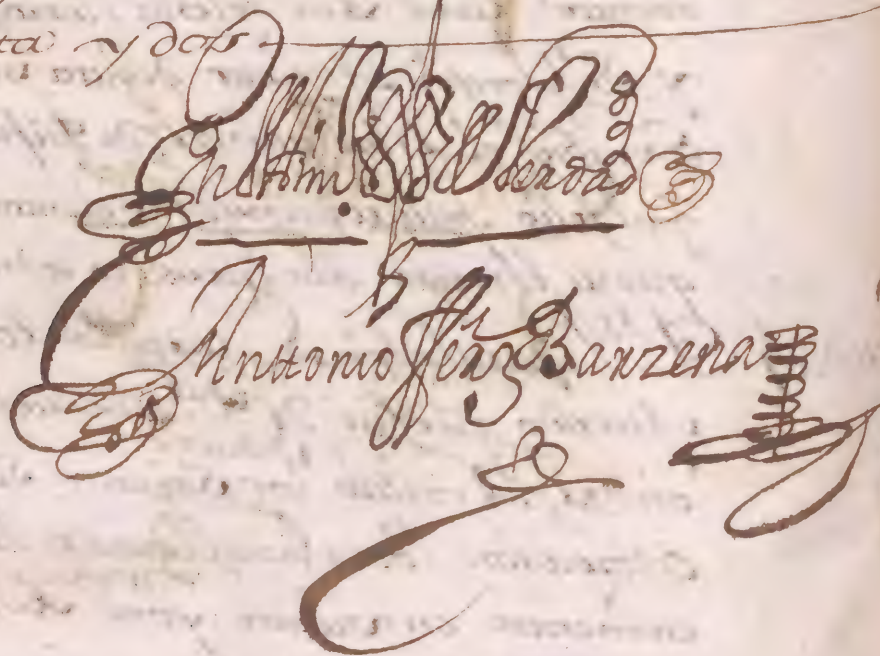 ta y dos
En testimo de verdad
Anttonio fferz Barzena